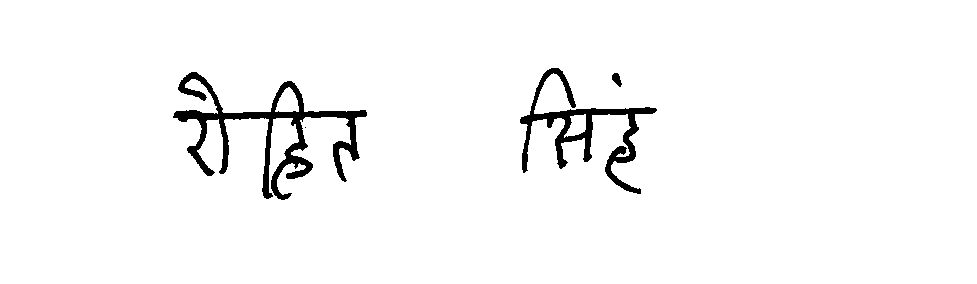 रौहित सिंह